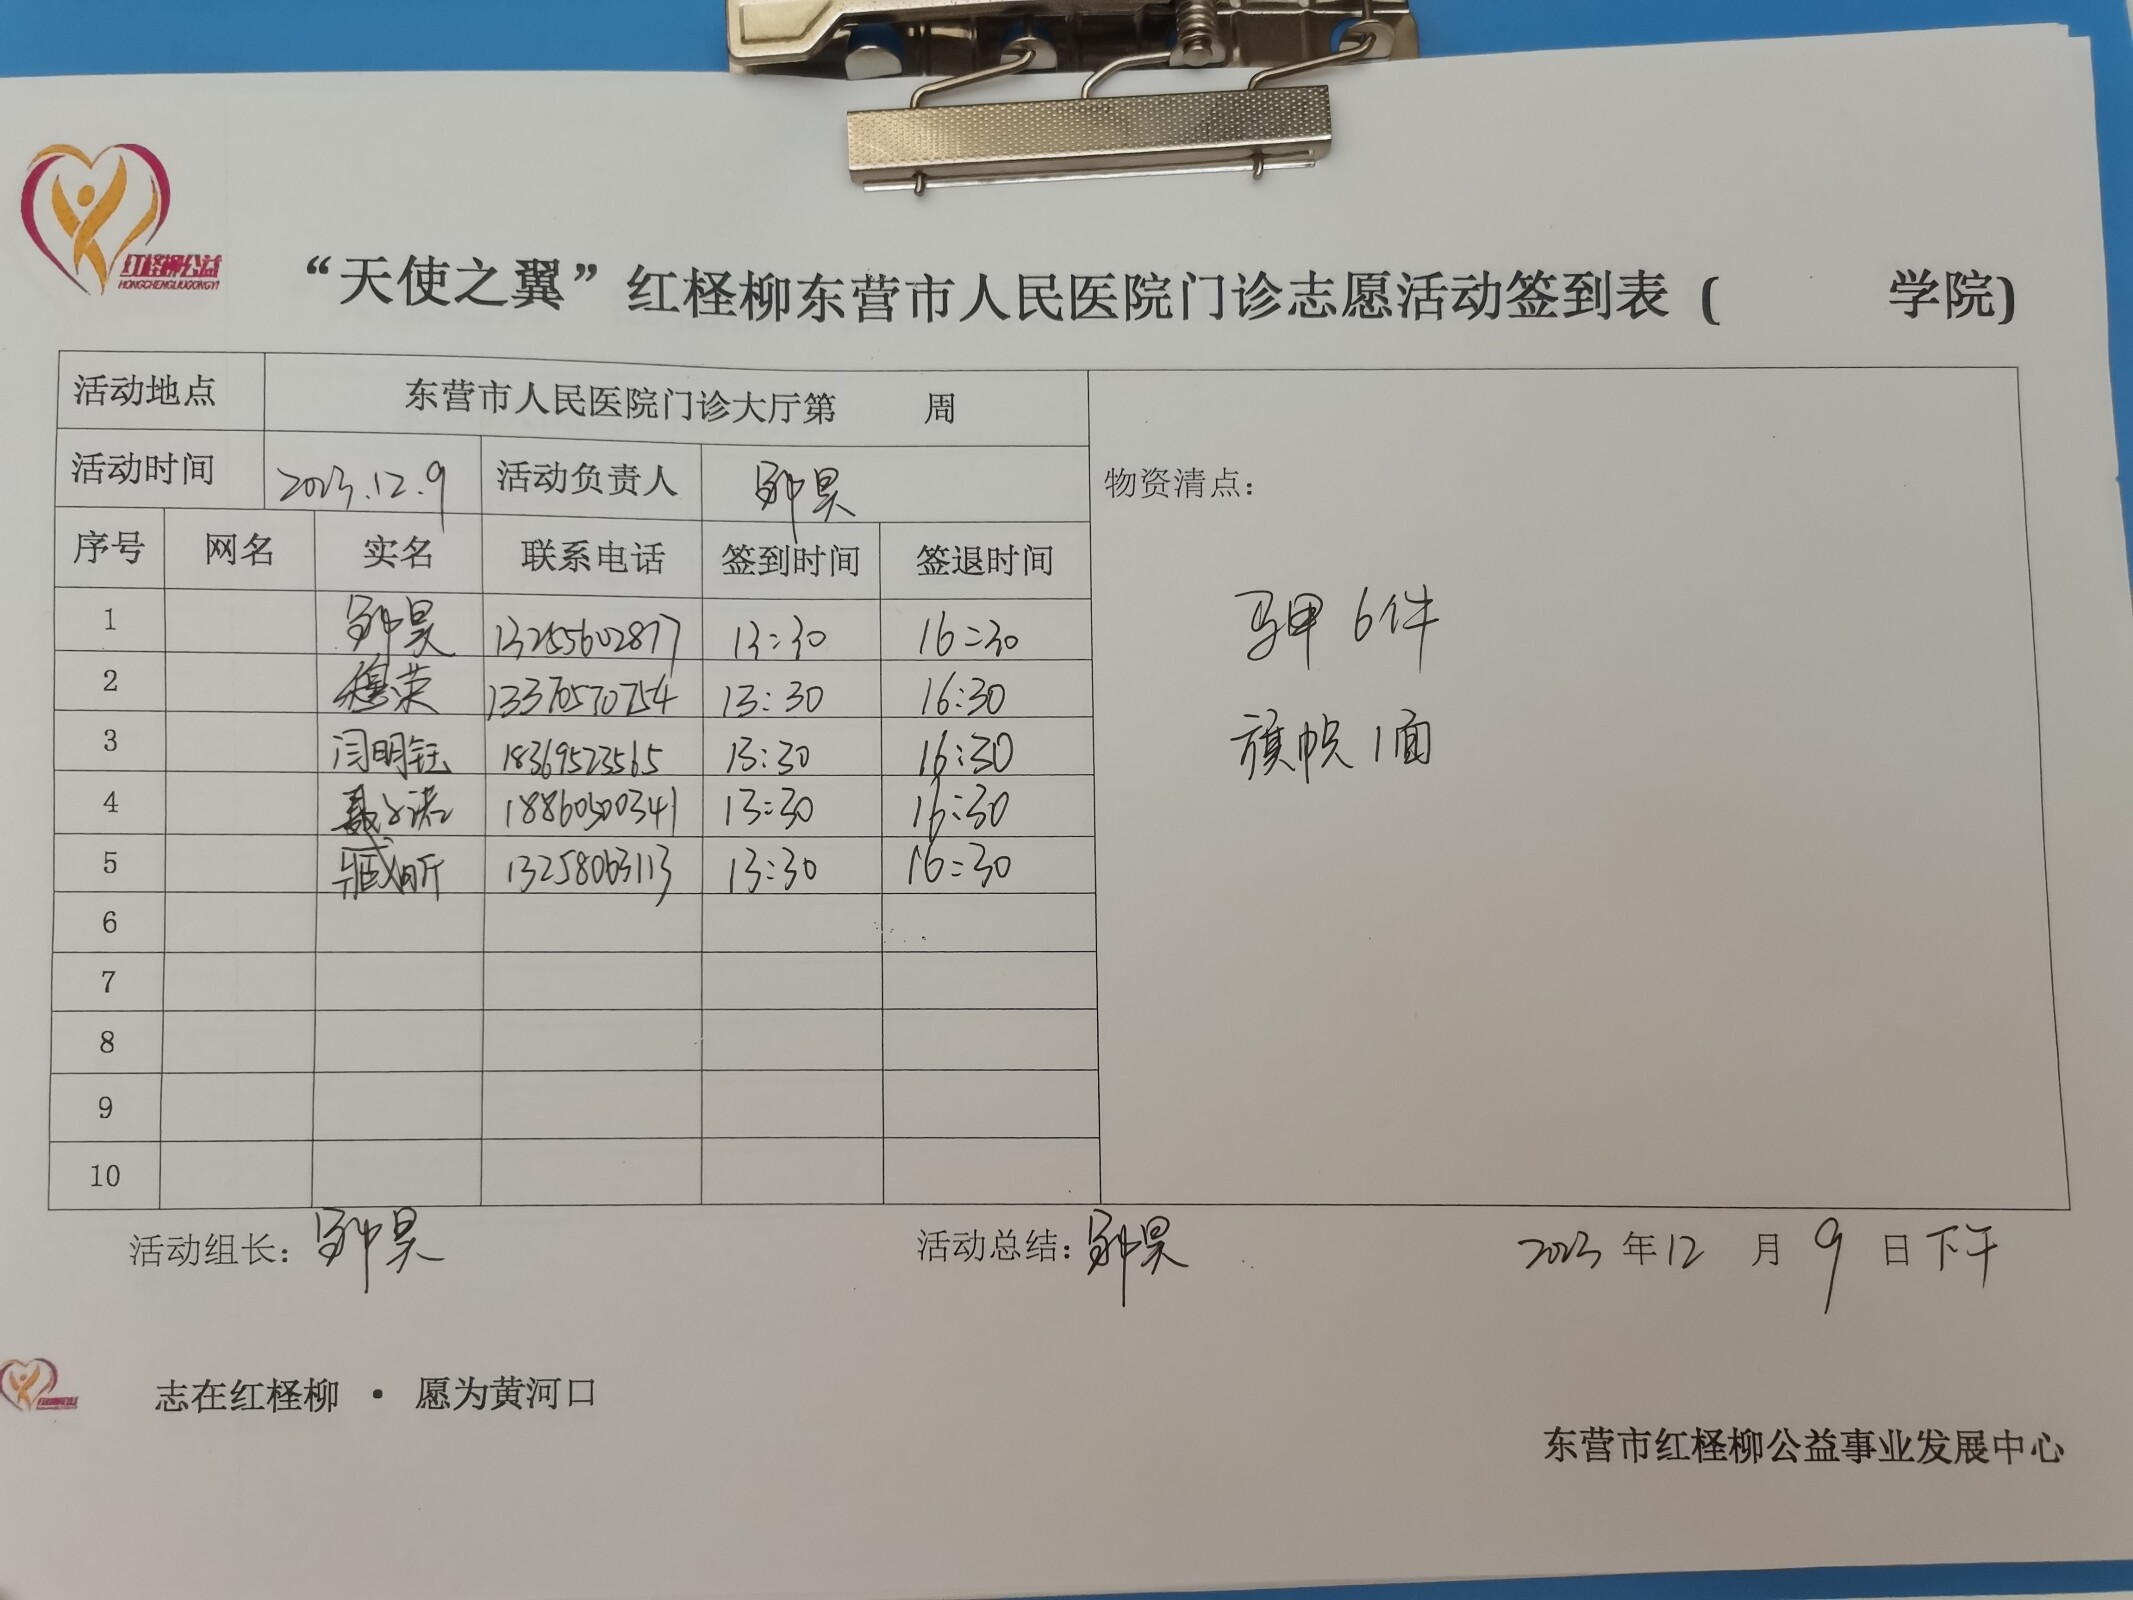 红柽柳公益
HONGCHENGLIUGONGYI
“天使之翼”红柽柳东营市人民医院门诊志愿活动签到表 ( 学院)
活动地点 东营市人民医院门诊大厅第 周
活动时间 2023.12.9 活动负责人
物资清点:
序号 网名 实名 联系电话 签到时间 签退时间
1 13255602877 13:30 16:30
2 穆荣 13370570754 13:30 16:30
3 闫明钰 18369523565 13:30 16:30
4 18860500341 13:30 16:30
5 臧昕 13258063113 13:30 16:30
6
7
8
9
10
马甲 6件
旗帜 1面
活动组长:
活动总结:
2023 年 12 月 9 日 下午
志在红柽柳 · 愿为黄河口
东营市红柽柳公益事业发展中心